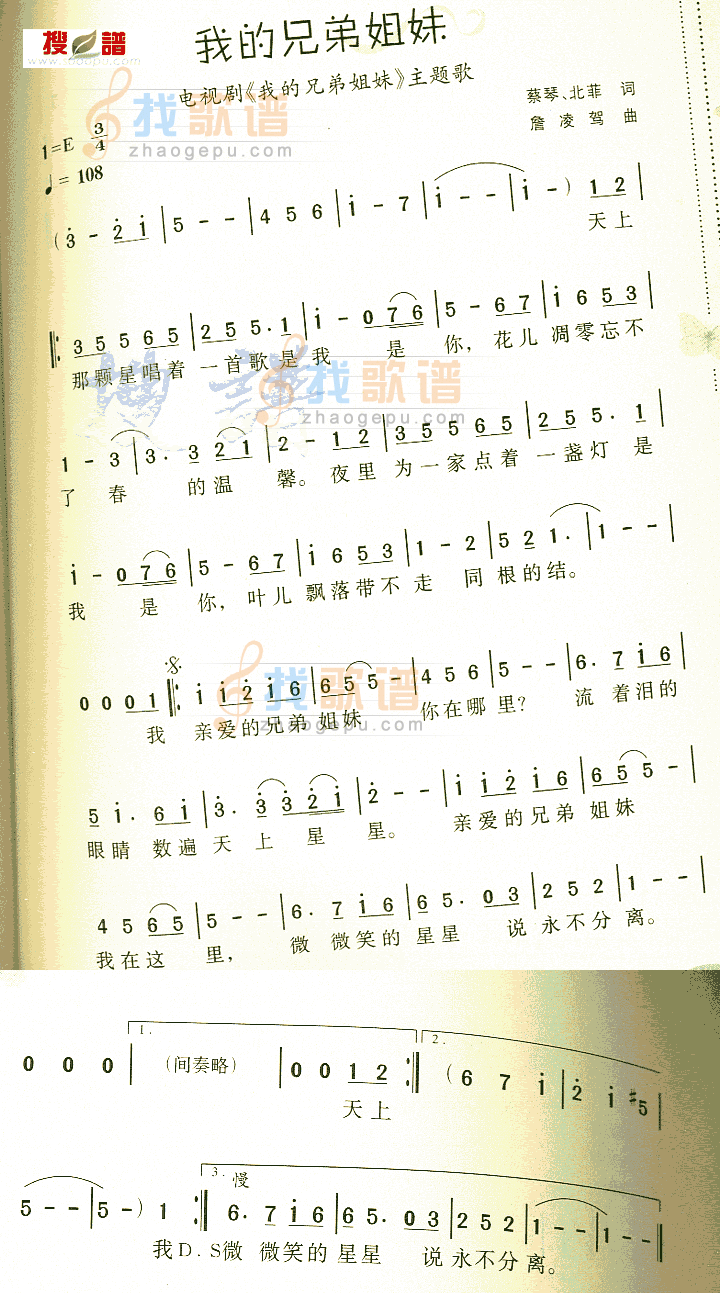 搜谱
www.sooopu.com
我的兄弟姐妹
电视剧《我的兄弟姐妹》主题歌
找歌谱
zhaogepu.com
蔡琴、北菲 词
詹凌驾 曲
1=E 3/4
♩= 108
(3 - 2 1 | 5 - - | 4 5 6 | i - 7 | i - - | i - ) 1 2
天上
‖: 3 5 5 6 5 | 2 5 5 · 1 | i - 0 7 6 | 5 - 6 7 | i 6 5 3 |
那颗星唱着 一首歌是我 是 你, 花儿 凋零忘不
找歌谱
zhaogepu.com
1 - 3 | 3 · 3 2 1 | 2 - 1 2 | 3 5 5 6 5 | 2 5 5 · 1 |
了 春 的温 馨。夜里 为一家点着 一盏灯 是
i - 0 7 6 | 5 - 6 7 | i 6 5 3 | 1 - 2 | 5 2 1 · | 1 - - |
我 是 你, 叶儿 飘落带不 走 同 根的结。
找歌谱
zhaogepu.com
0 0 0 1 ‖: i i 2 i 6 | 6 5 5 - | 4 5 6 | 5 - - | 6 · 7 i 6 |
我 亲爱的兄弟 姐妹 你在哪 里? 流 着泪的
5 i · 6 i | 3 · 3 3 2 i | 2 - - | i i 2 i 6 | 6 5 5 - |
眼睛 数遍 天 上 星 星。 亲爱的兄弟 姐妹
4 5 6 5 | 5 - - | 6 · 7 i 6 | 6 5 · 0 3 | 2 5 2 | 1 - - |
我在这 里, 微 微笑的 星星 说 永不分 离。
1. 2.
0 0 0 | (间奏略) | 0 0 1 2 :‖ ( 6 7 i | 2 i #5 |
天上
3. 慢
5 - - | 5 - ) 1 :‖ 6 · 7 i 6 | 6 5 · 0 3 | 2 5 2 | 1 - - | 1 - - |
我D.S微 微笑的 星星 说 永不分 离。